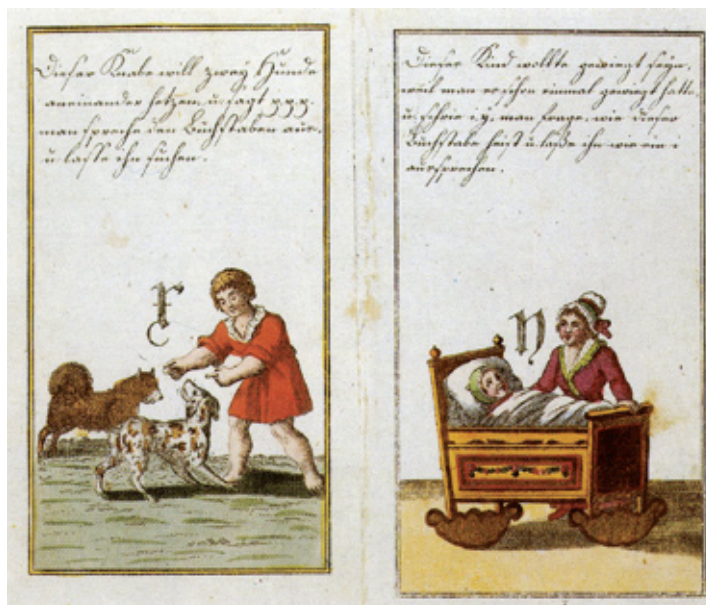 Dieser Knabe will zwey Hunde
aneinander hetzen, u. sagt x.x.x.
man spreche den Buchstaben aus,
u. lasse ihn suchen.
x
Dieses Kind wollte gewiegt seyn,
weil man es schon einmal gewiegt hatte,
u. schrie y.y. man frage, wie dieser
Buchstabe heist u. laße ihn wie ein i
aussprechen.
y